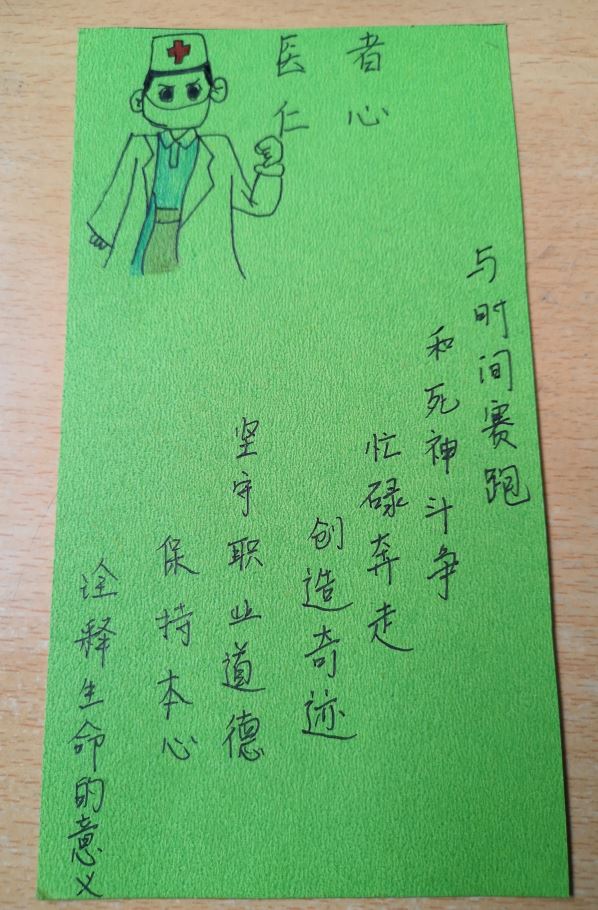 医者
仁心
与时间赛跑
和死神斗争
忙碌奔走
创造奇迹
坚守职业道德
保持本心
诠释生命的意义